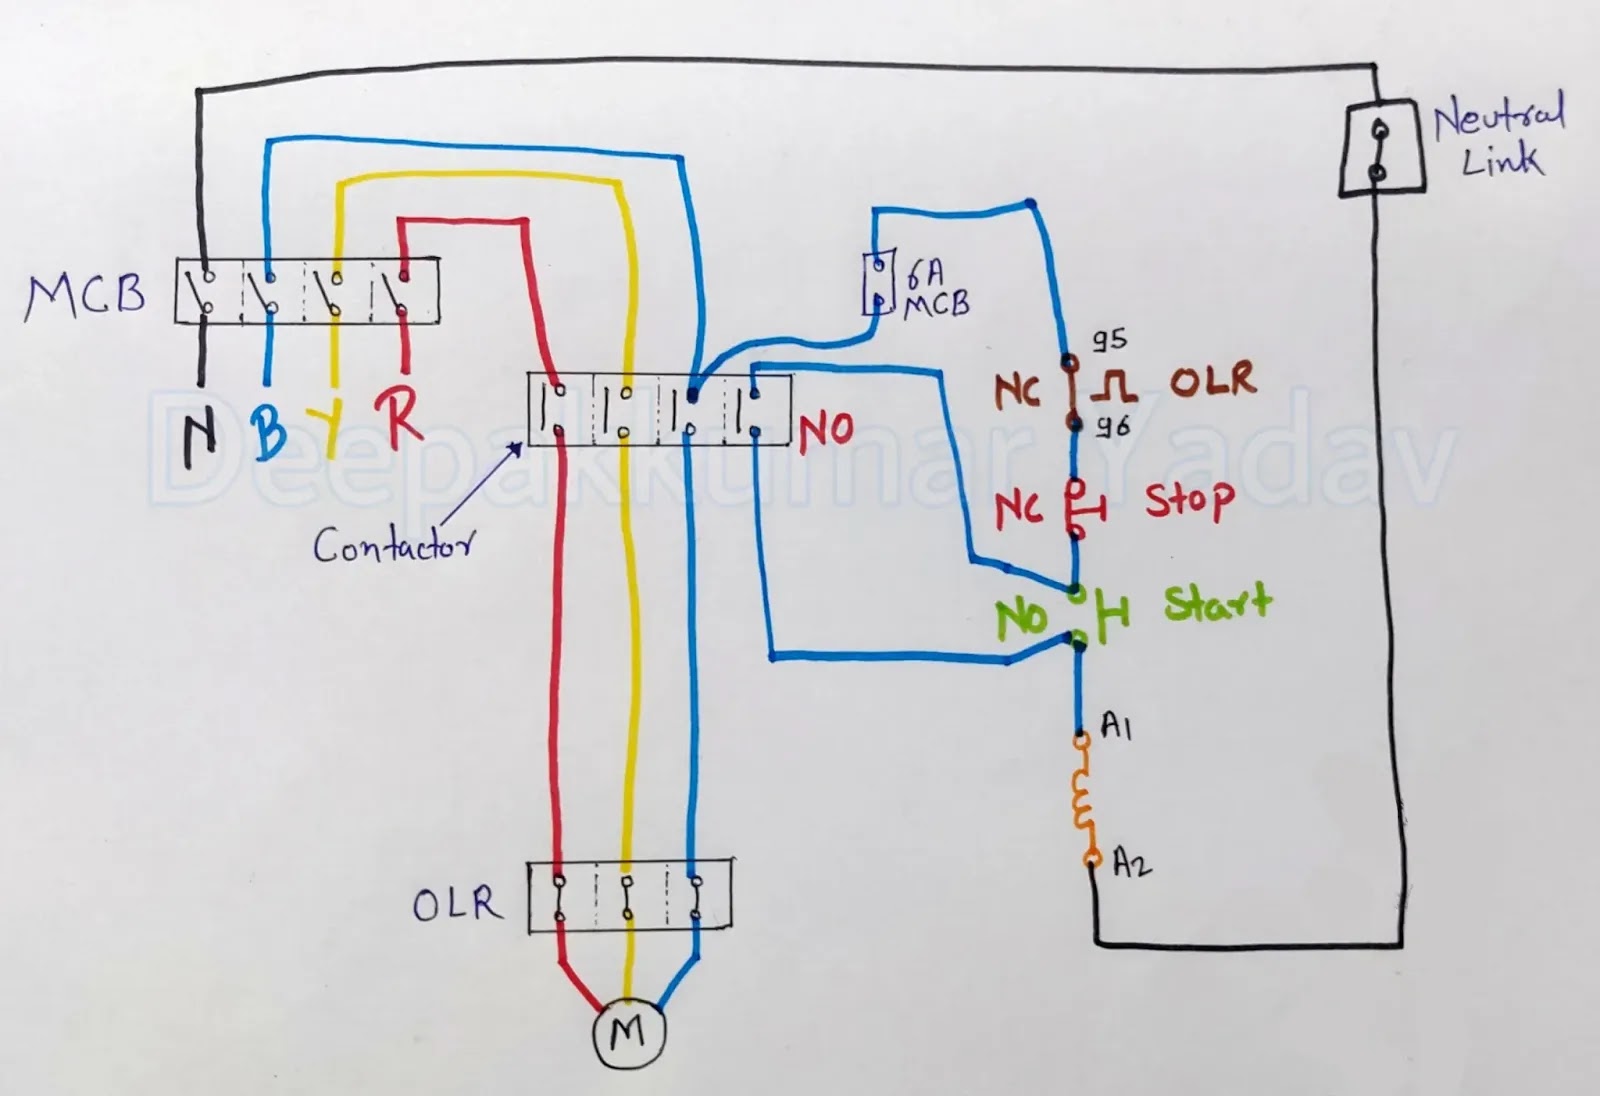 Neutral
Link
MCB
6A
MCB
N
B
Y
R
NO
95
NC
OLR
96
Deepakkumar Yadav
Contactor
NC
Stop
NO
Start
A1
A2
OLR
M